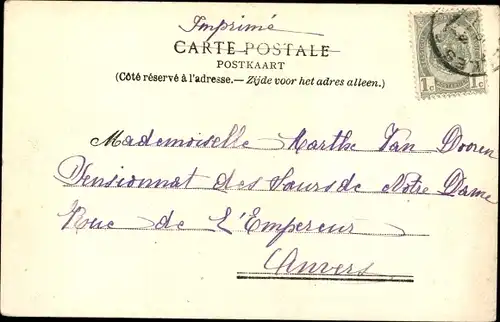 Imprimé
CARTE POSTALE
POSTKAART
(Côté réservé à l'adresse.— Zijde voor het adres alleen.)
1c 1c
Mademoiselle Marthe Van Dooren
Pensionnat des Sœurs de Notre Dame
Rue de l'Empereur
Anvers